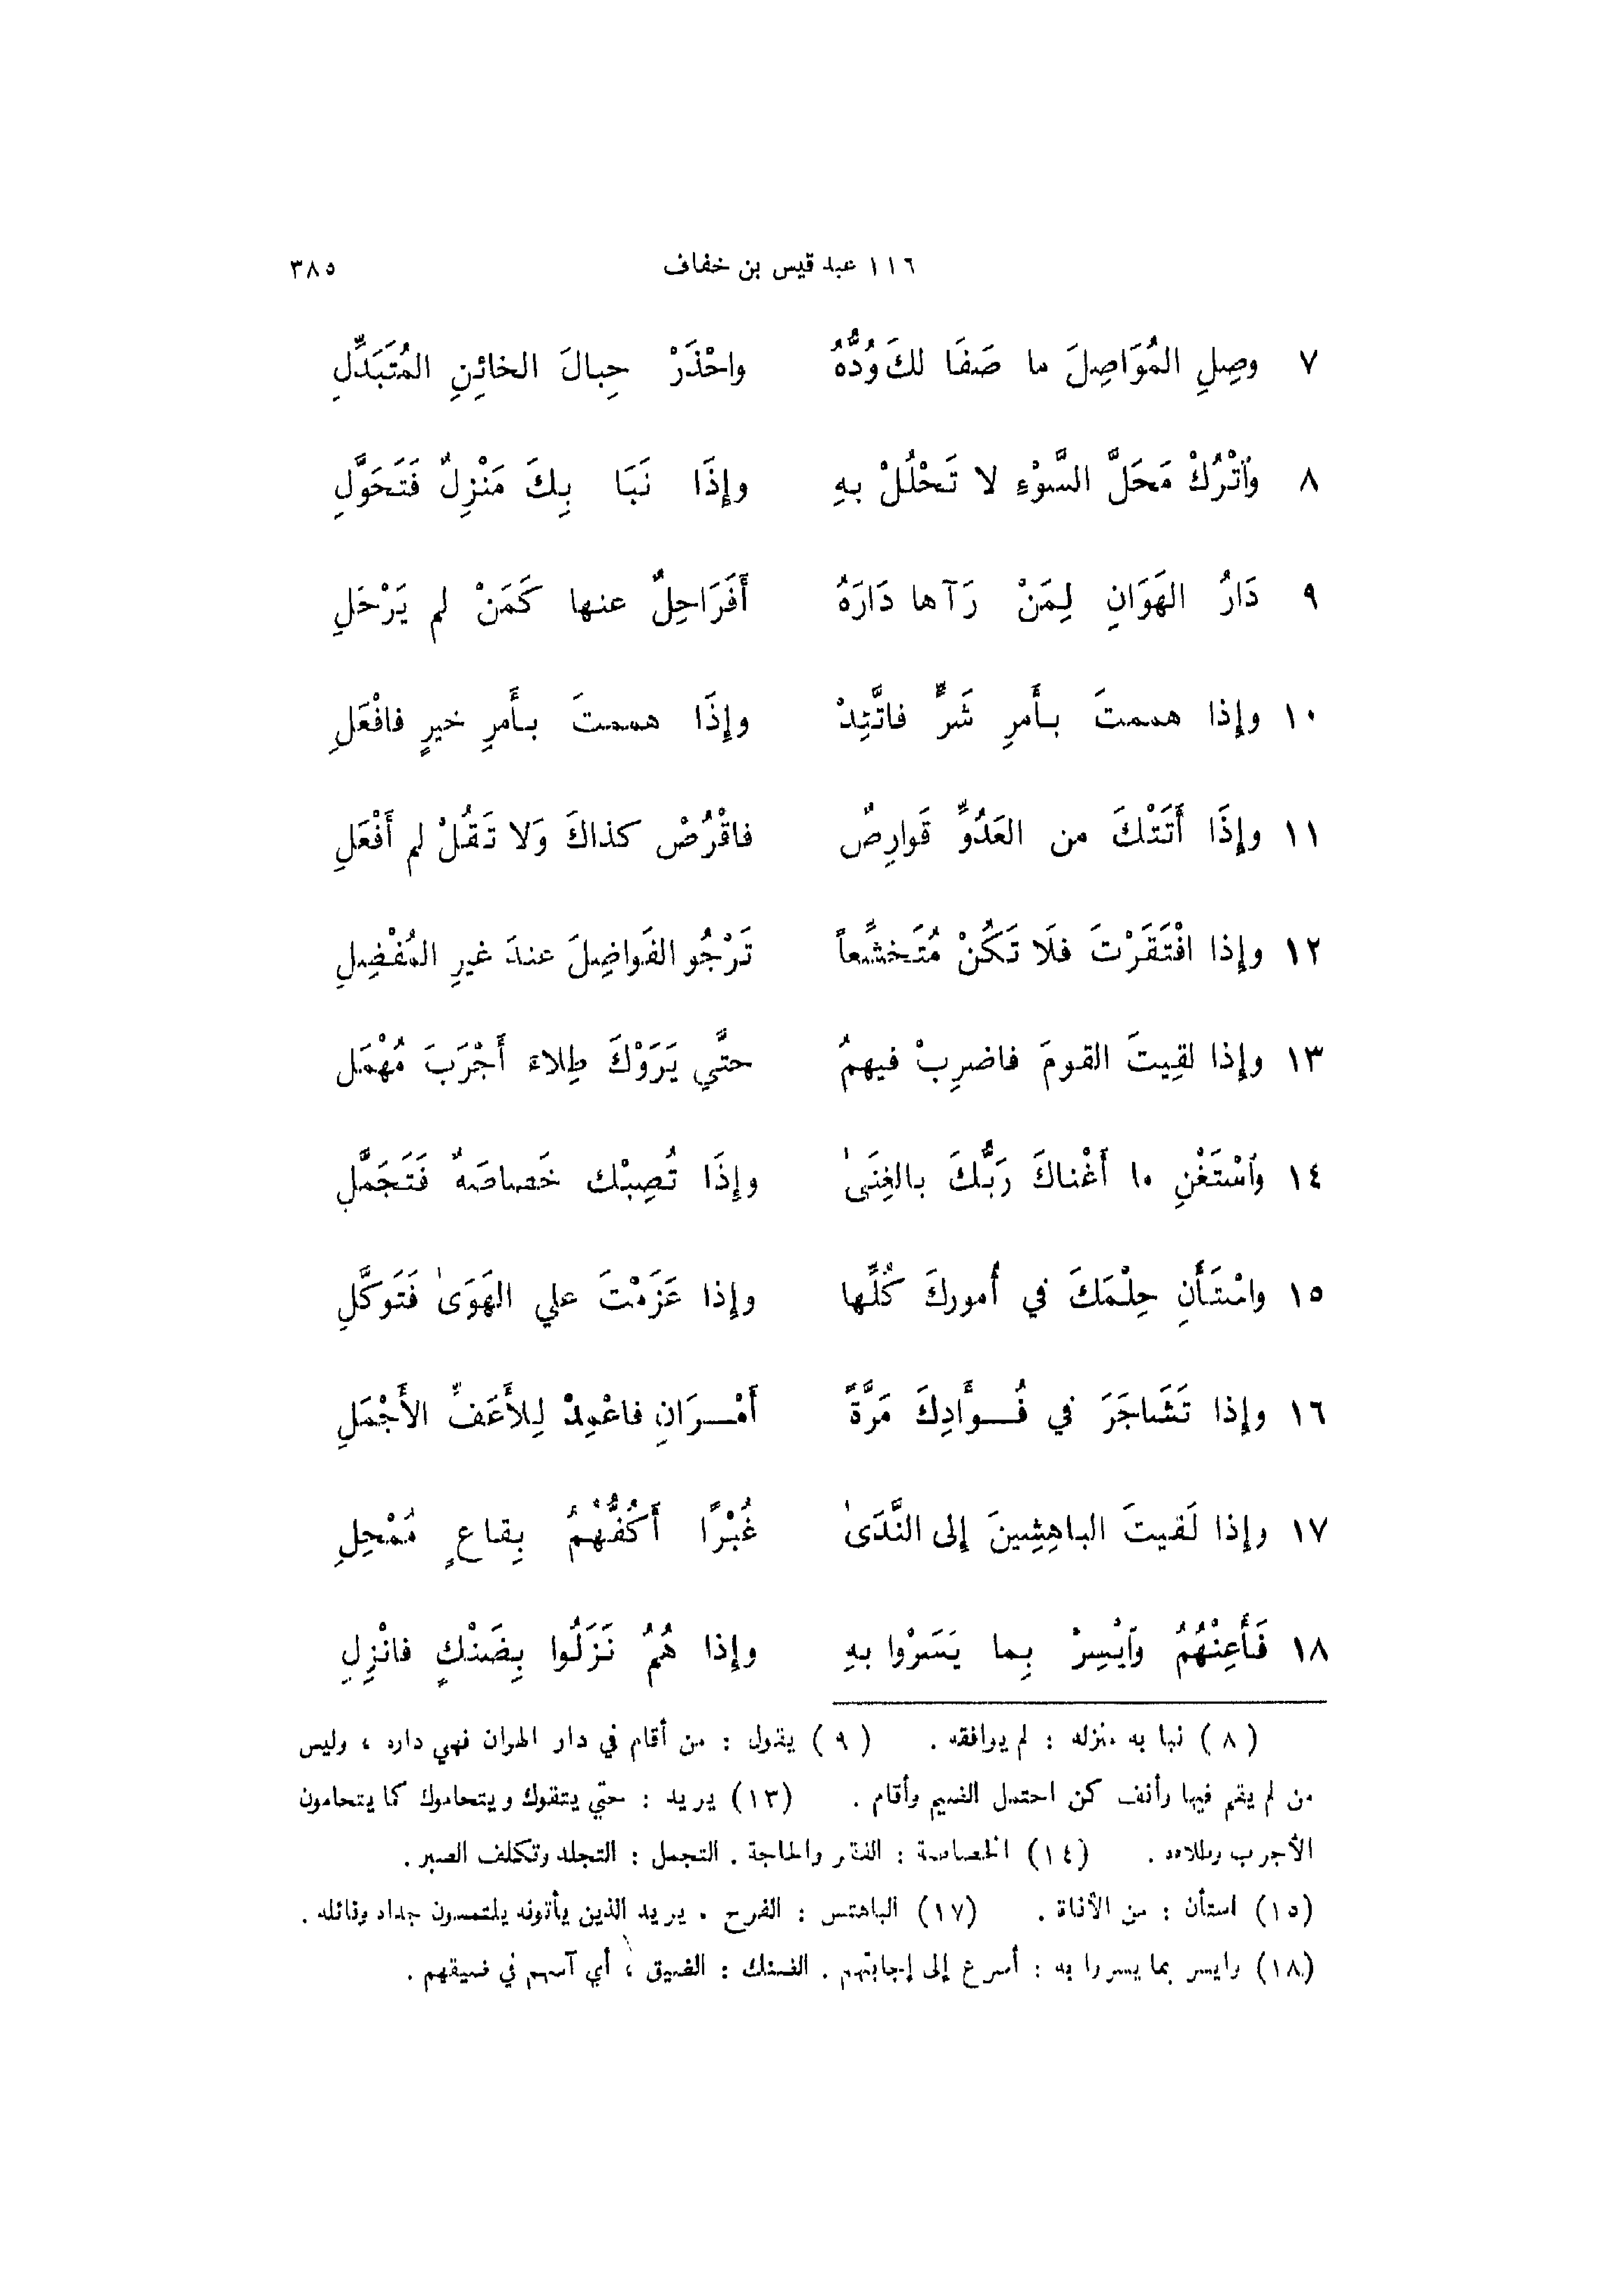 ١١٦ عبد قيس بن خفاف ٣٨٥
٧ وصِلِ المُوَاصِلَ ما صَفَا لكَ وُدُّهُ واحْذَرْ حِبالَ الخائِنِ المُتَبَدِّلِ
٨ وٱتْرُكْ مَحَلَّ السَّوْءِ لا تَحْلُلْ بهِ وإِذَا نَبَا بِكَ مَنْزِلٌ فَتَحَوَّلِ
٩ دَارُ الهَوَانِ لِمَنْ رَآها دَارَهُ أَفَرَاحِلٌ عنها كَمَنْ لم يَرْحَلِ
١٠ وإِذا هممتَ بأَمرِ شَرٍّ فاتَّئِدْ وإِذَا هممتَ بأَمرِ خيرٍ فافْعَلِ
١١ وإِذَا أَتَتْكَ من العَدُوِّ قَوارِصٌ فاقْرُصْ كذاكَ وَلا تَقُلْ لم أَفْعَلِ
١٢ وإِذا افْتَقَرْتَ فلَا تَكُنْ مُتَخشِّعاً تَرْجُو الفَواضِلَ عندَ غيرِ المُفْضِلِ
١٣ وإِذا لقِيتَ القومَ فاضرِبْ فيهمُ حتَّي يَرَوْكَ طِلاءَ أَجْرَبَ مُهْمَلِ
١٤ وٱسْتَغْنِ ما أَغْناكَ رَبُّكَ بالغِنَىٰ وإِذَا تُصِبْك خَصاصَةٌ فَتَجَمَّلِ
١٥ واسْتَأْنِ حِلْمَكَ في أُمورِكَ كُلِّها وإِذا عَزَمْتَ علي الهَوَىٰ فَتَوكَّلِ
١٦ وإِذا تَشَاجَرَ في فُـؤَادِكَ مَرَّةً أَمْـرَانِ فاعْمِدْ لِلأَعَفِّ الأَجْمَلِ
١٧ وإِذا لَقيتَ الباهِشِينَ إِلى النَّدَىٰ غُبْرًا أَكُفُّهُمُ بِقاعٍ مُمْحِلِ
١٨ فَأَعِنْهُمُ وٱيْسِرْ بِما يَسَرُوا بهِ وإِذا هُمُ نَزَلُوا بِضَنْكٍ فانْزِلِ
(٨) نبا به منزله : لم يوافقه . (٩) يقول : من أقام في دار الهوان فهي داره ، وليس
من لم يقم فيها وأنف كمن احتمل الضيم وأقام . (١٣) يريد : حتي يتقوك ويتحاموك كما يتحامون
الأجرب وطلاءه . (١٤) الخصاصة : الفقر والحاجة . التجمل : التجلد وتكلف الصبر .
(١٥) استأن : من الأناة . (١٧) الباهش : الفرح . يريد الذين يأتونه يلتمسون جداه ونائله .
(١٨) وايسر بما يسروا به : أسرع إلى إجابتهم . الضنك : الضيق ، أي آسهم في ضيقهم .